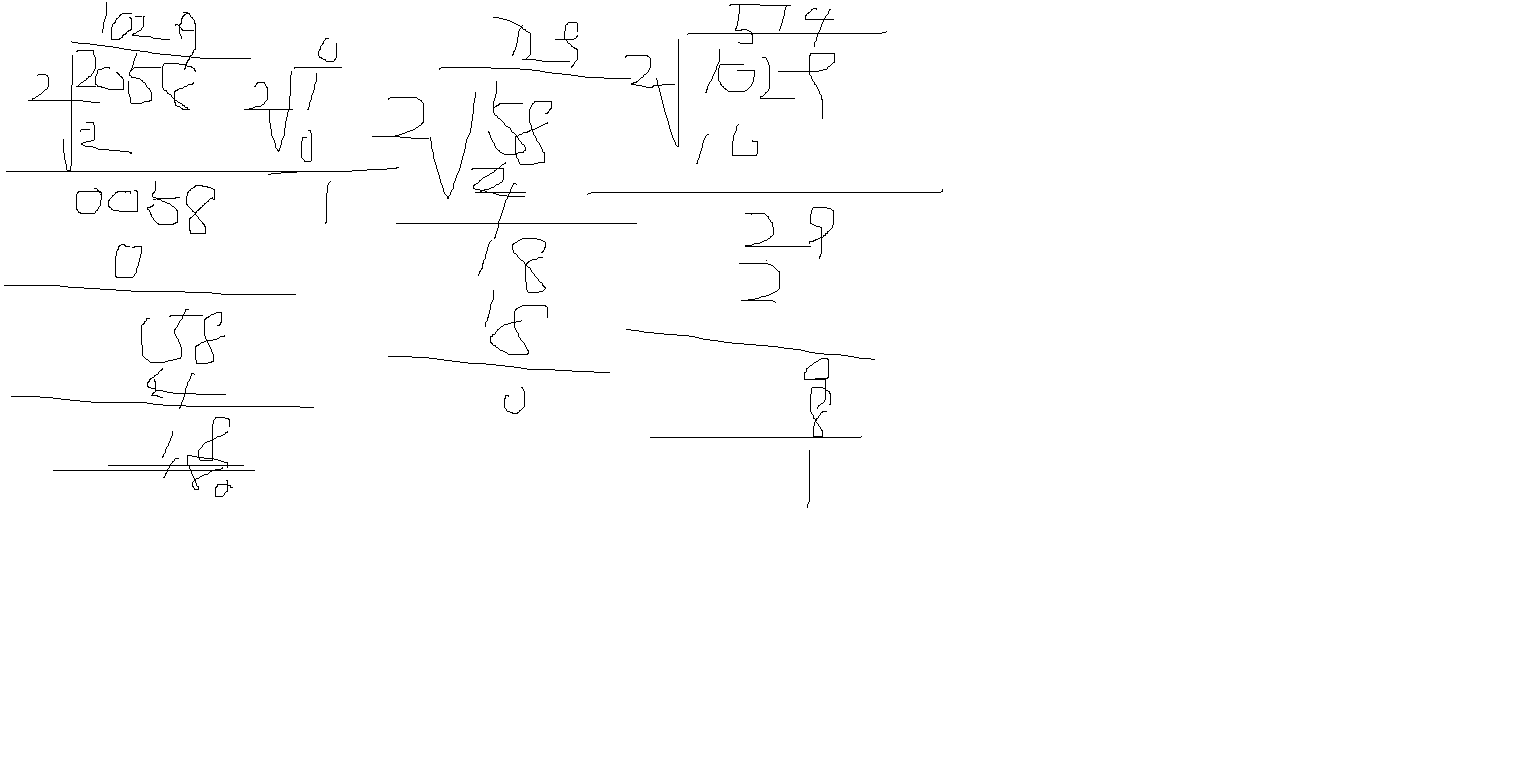 1029
2 2058
2
0058
0
058
4
18
18
0
0
2 1
0
1
29
2 58
4
18
18
0
514
2 1029
10
29
2
9
8
1